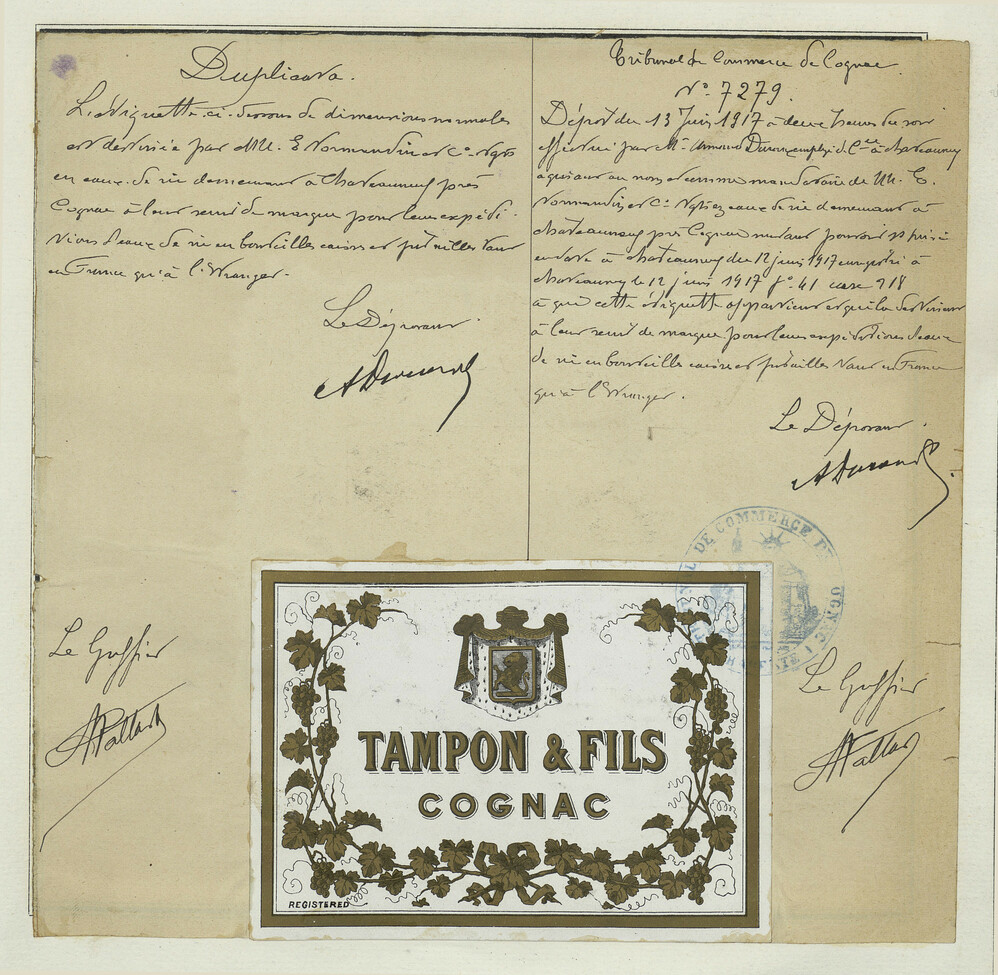 Duplicata.
L'étiquette ci-dessous de dimensions normales
est destinée par MM. E Normandin et Cie Ngts
en eaux-de-vie demeurant à Chateauneuf près
Cognac à leur servir de marque pour leurs expédi-
tions d'eaux-de-vie en bouteilles caisses et futailles tant
en France qu'à l'Etranger.
Le Déposant
A Durand
Le Greffier
Tribunal de Commerce de Cognac.
No 7279.
Dépôt du 13 Juin 1917 à deux heures du soir
effectué par Mr Armand Durand employé de Cce à Chateauneuf
agissant au nom et comme mandataire de MM. E.
Normandin et Cie Ngts en eaux-de-vie demeurant à
Chateauneuf près Cognac suivant pouvoir ssp fait
en date à Chateauneuf du 12 juin 1917 enregistré à
Chateauneuf le 12 juin 1917 fo 41 case 918
à qui cette étiquette appartient et qui la destinent
à leur servir de marque pour leurs expéditions d'eaux-
de-vie en bouteilles caisses et futailles tant en France
qu'à l'Etranger.
Le Déposant.
A Durand
Le Greffier
DE COMMERCE DE COGNAC
TAMPON & FILS
COGNAC
REGISTERED